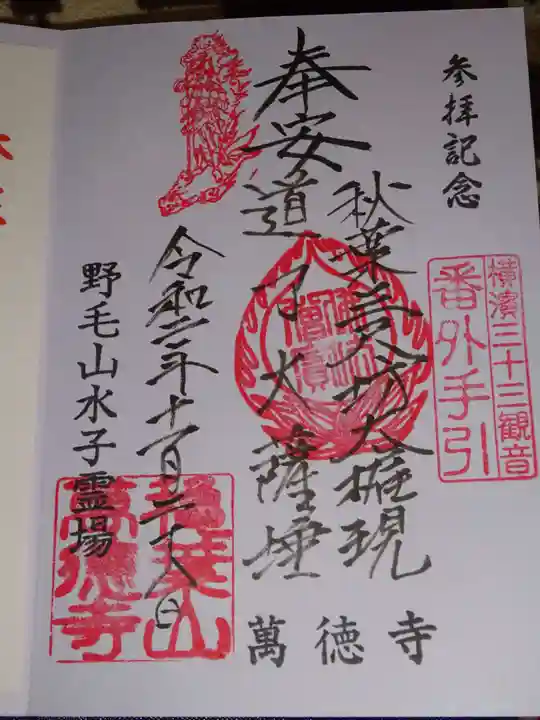 参拝記念
横濱三十三観音
番外手引
秋葉三尺坊大権現
奉安
道了大薩埵
令和二年十一月二十八日
野毛山水子霊場
萬徳寺
萬徳寺